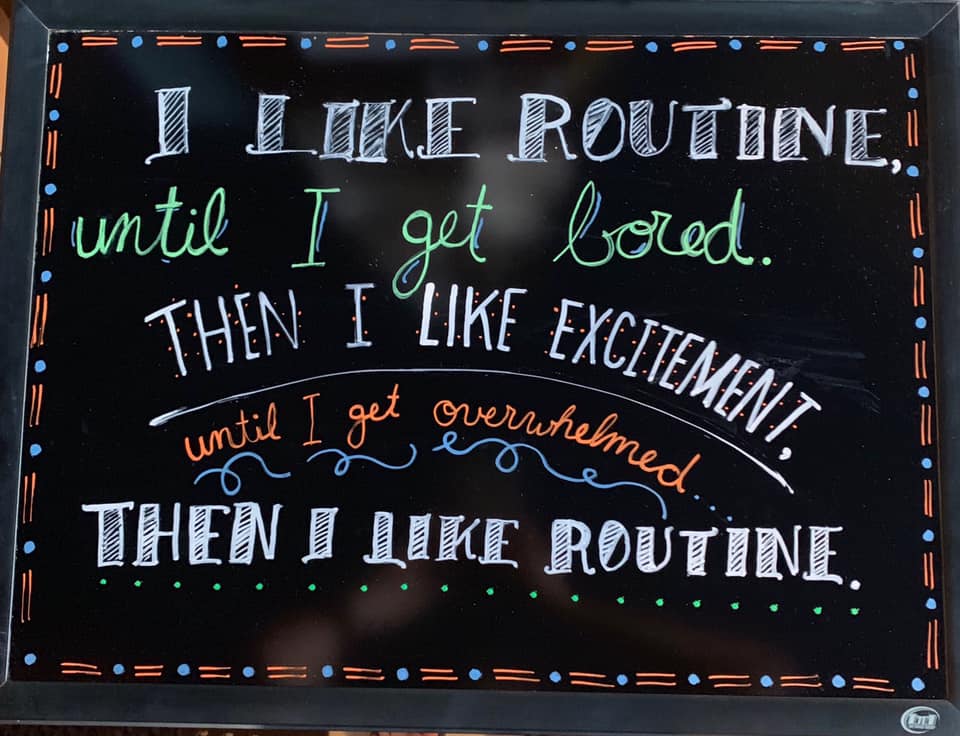 I LIKE ROUTINE,
until I get bored.
THEN I LIKE EXCITEMENT,
until I get overwhelmed...
THEN I LIKE ROUTINE.